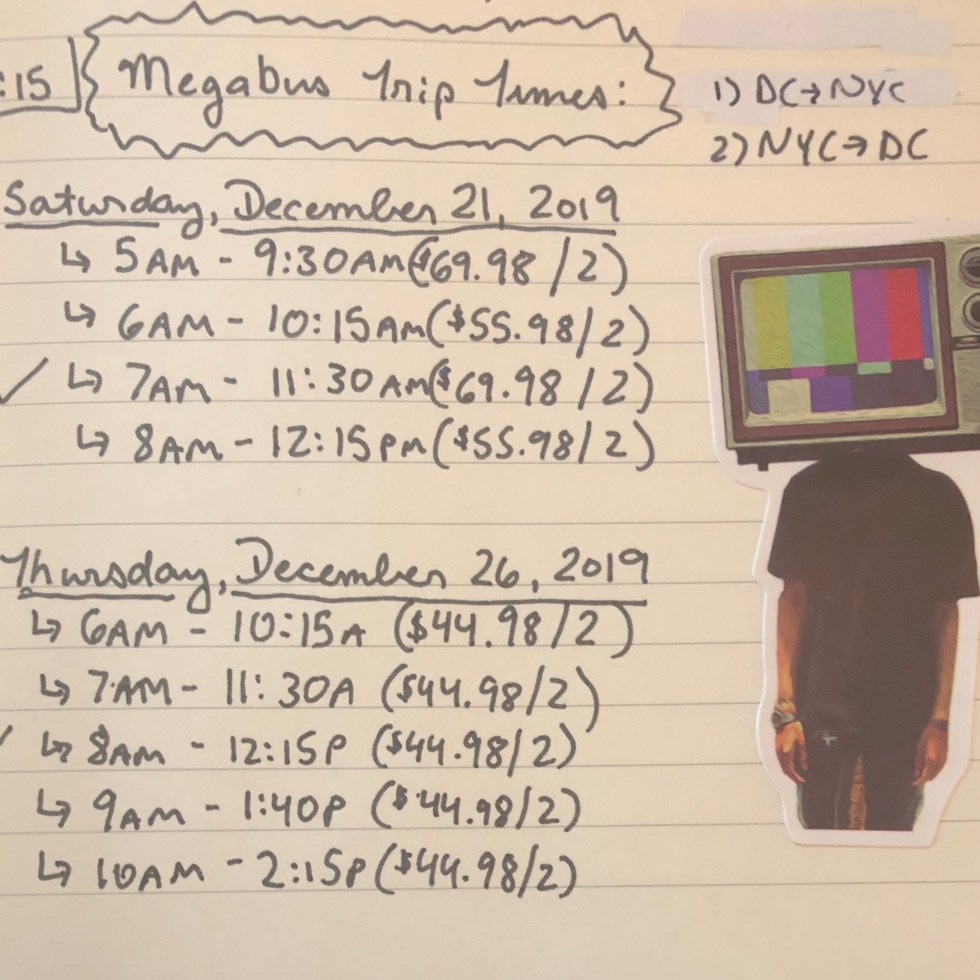 :15
Megabus Trip Times:
1) DC→NYC
2) NYC→DC
Saturday, December 21, 2019
↳ 5AM - 9:30AM($69.98/2)
↳ 6AM - 10:15AM($55.98/2)
✓ ↳ 7AM - 11:30AM($69.98/2)
↳ 8AM - 12:15PM($55.98/2)
Thursday, December 26, 2019
↳ 6AM - 10:15A ($44.98/2)
↳ 7AM - 11:30A ($44.98/2)
✓ ↳ 8AM - 12:15P ($44.98/2)
↳ 9AM - 1:40P ($44.98/2)
↳ 10AM - 2:15P ($44.98/2)